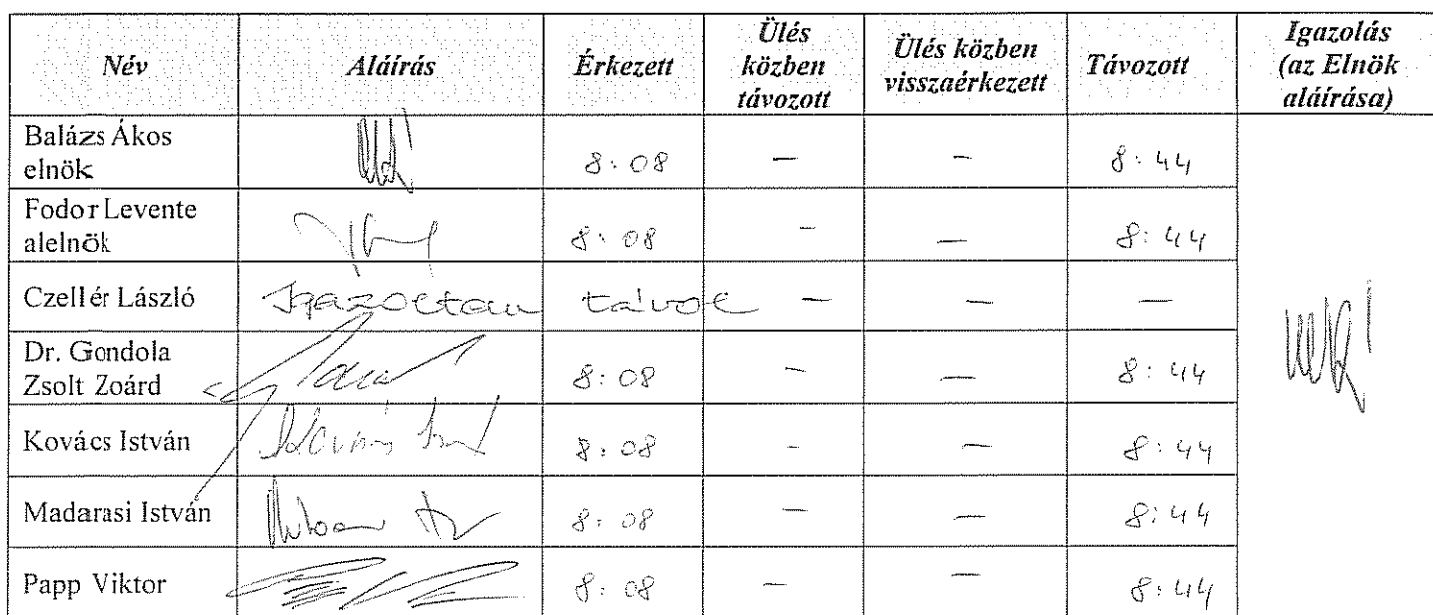 Név Aláírás Érkezett Ülés közben távozott Ülés közben visszaérkezett Távozott Igazolás (az Elnök aláírása)
Balázs Ákos elnök 8:08 – – 8:44
Fodor Levente alelnök 8:08 – – 8:44
Czellér László Igazoltan távol – – –
Dr. Gondola Zsolt Zoárd 8:08 – – 8:44
Kovács István Kovács 8:08 – – 8:44
Madarasi István 8:08 – – 8:44
Papp Viktor 8:08 – – 8:44